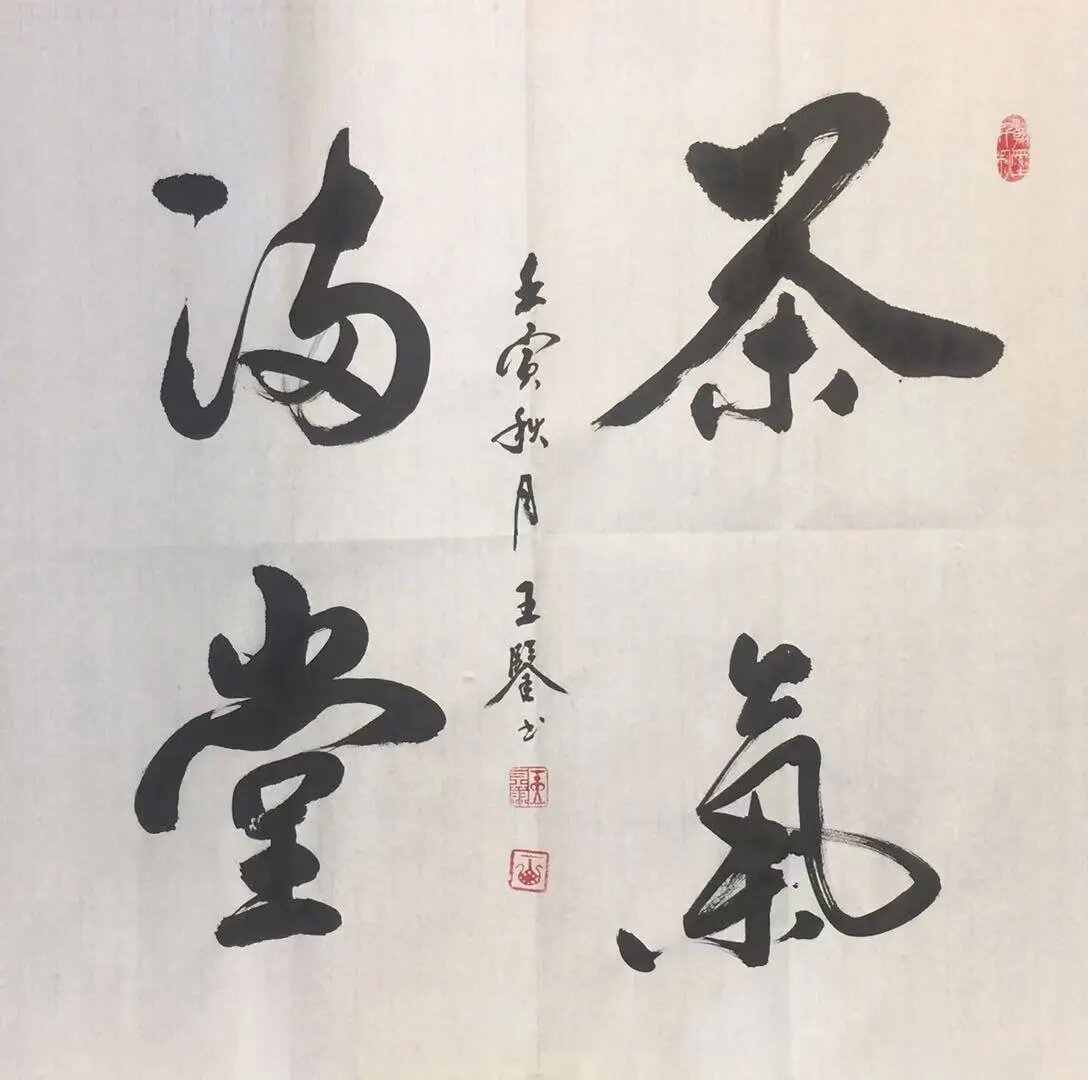 茶氣
滿堂
壬寅秋月 王 书